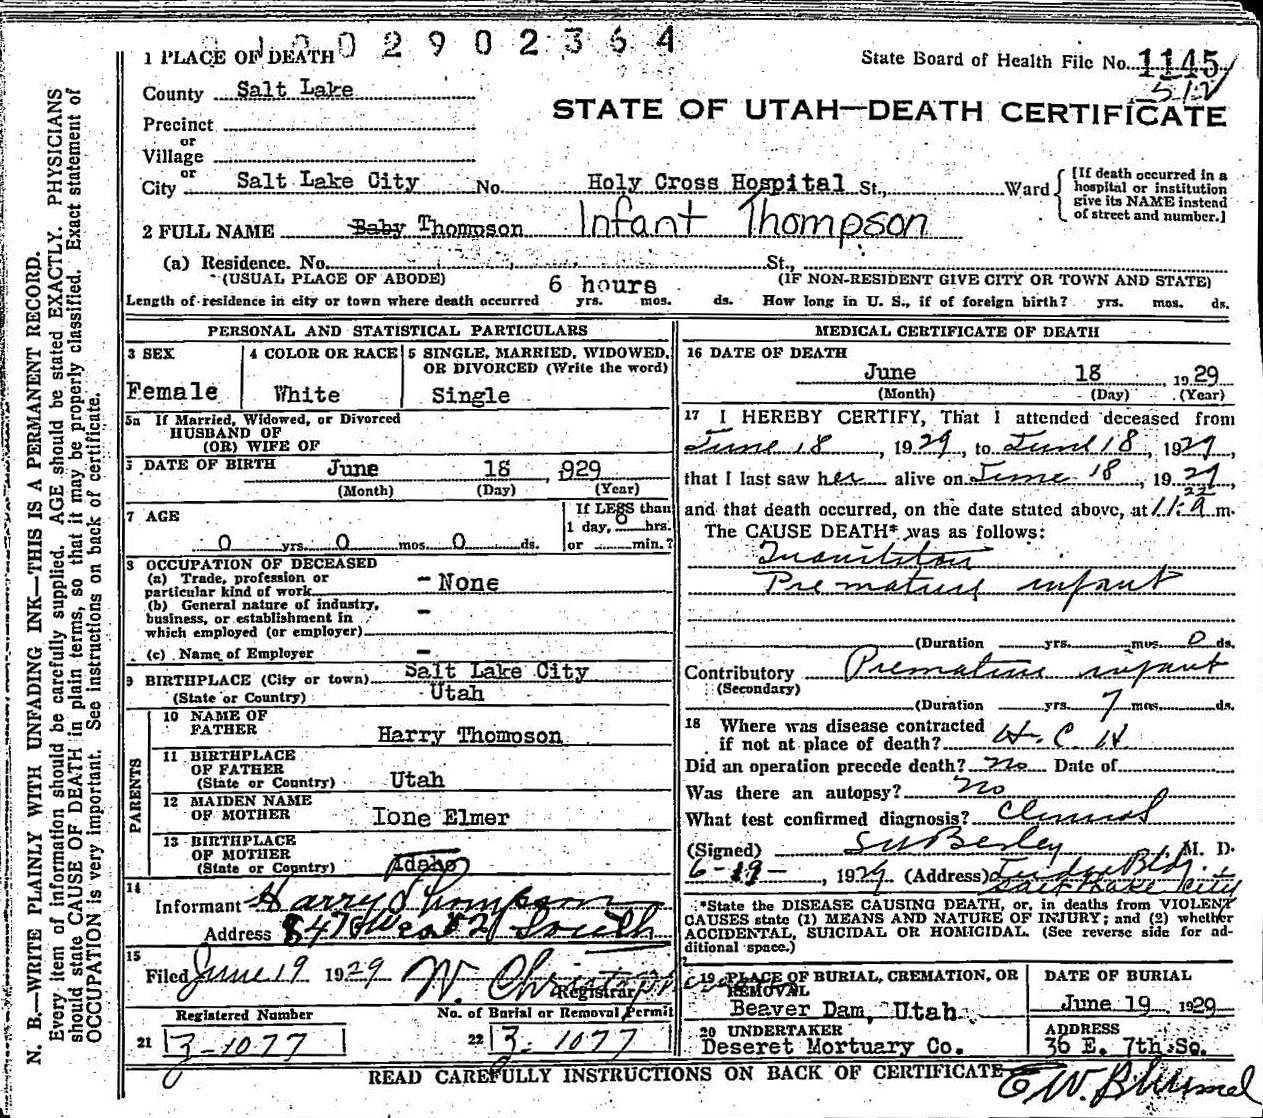 N. B.—WRITE PLAINLY WITH UNFADING INK—THIS IS A PERMANENT RECORD.
Every item of information should be carefully supplied. AGE should be stated EXACTLY. PHYSICIANS
should state CAUSE OF DEATH in plain terms, so that it may be properly classified. Exact statement of
OCCUPATION is very important. See instructions on back of certificate.
02902364
1 PLACE OF DEATH
State Board of Health File No. 1145
512
County Salt Lake
STATE OF UTAH—DEATH CERTIFICATE
Precinct
or
Village
or
City Salt Lake City No. Holy Cross Hospital St., Ward
[If death occurred in a
hospital or institution
give its NAME instead
of street and number.]
2 FULL NAME Baby Thompson Infant Thompson
(a) Residence. No. St.,
(USUAL PLACE OF ABODE) (IF NON-RESIDENT GIVE CITY OR TOWN AND STATE)
6 hours
Length of residence in city or town where death occurred yrs. mos. ds. How long in U. S., if of foreign birth? yrs. mos. ds.
PERSONAL AND STATISTICAL PARTICULARS
3 SEX 4 COLOR OR RACE 5 SINGLE, MARRIED, WIDOWED,
OR DIVORCED (Write the word)
Female White Single
5a If Married, Widowed, or Divorced
HUSBAND OF
(OR) WIFE OF
DATE OF BIRTH June 18, 929
(Month) (Day) (Year)
7 AGE
If LESS than
1 day, 6 hrs.
0 yrs. 0 mos. 0 ds. or min.?
8 OCCUPATION OF DECEASED
(a) Trade, profession or
particular kind of work - None
(b) General nature of industry,
business, or establishment in
which employed (or employer) -
(c) Name of Employer -
9 BIRTHPLACE (City or town) Salt Lake City
(State or Country) Utah
PARENTS
10 NAME OF
FATHER Harry Thomoson
11 BIRTHPLACE
OF FATHER
(State or Country) Utah
12 MAIDEN NAME
OF MOTHER Ione Elmer
13 BIRTHPLACE
OF MOTHER
(State or Country) Idaho
14
Informant Harry Thompson
Address 847 West 2 South
15
Filed June 19 1929 W. Christopherson
Registrar
Registered Number No. of Burial or Removal Permit
21 3-1077 22 3-1077
MEDICAL CERTIFICATE OF DEATH
16 DATE OF DEATH
June 18 1929
(Month) (Day) (Year)
17 I HEREBY CERTIFY, That I attended deceased from
June 18, 1929, to June 18, 1929,
that I last saw her alive on June 18, 1929,
and that death occurred, on the date stated above, at 11:22 a m.
The CAUSE DEATH* was as follows:
Inanition
Premature infant
(Duration yrs. mos. 0 ds.
Contributory Premature infant
(Secondary)
(Duration yrs. 7 mos. ds.
18 Where was disease contracted
if not at place of death? H. C. H.
Did an operation precede death? No Date of
Was there an autopsy? No
What test confirmed diagnosis? Clinical
(Signed) M. D.
6-19-, 1929 (Address) Judge Bldg.
Salt Lake City
*State the DISEASE CAUSING DEATH, or, in deaths from VIOLENT
CAUSES state (1) MEANS AND NATURE OF INJURY; and (2) whether
ACCIDENTAL, SUICIDAL OR HOMICIDAL. (See reverse side for ad-
ditional space.)
19 PLACE OF BURIAL, CREMATION, OR
REMOVAL
Beaver Dam, Utah
DATE OF BURIAL
June 19, 1929
20 UNDERTAKER
Deseret Mortuary Co.
ADDRESS
36 E. 7th So.
READ CAREFULLY INSTRUCTIONS ON BACK OF CERTIFICATE